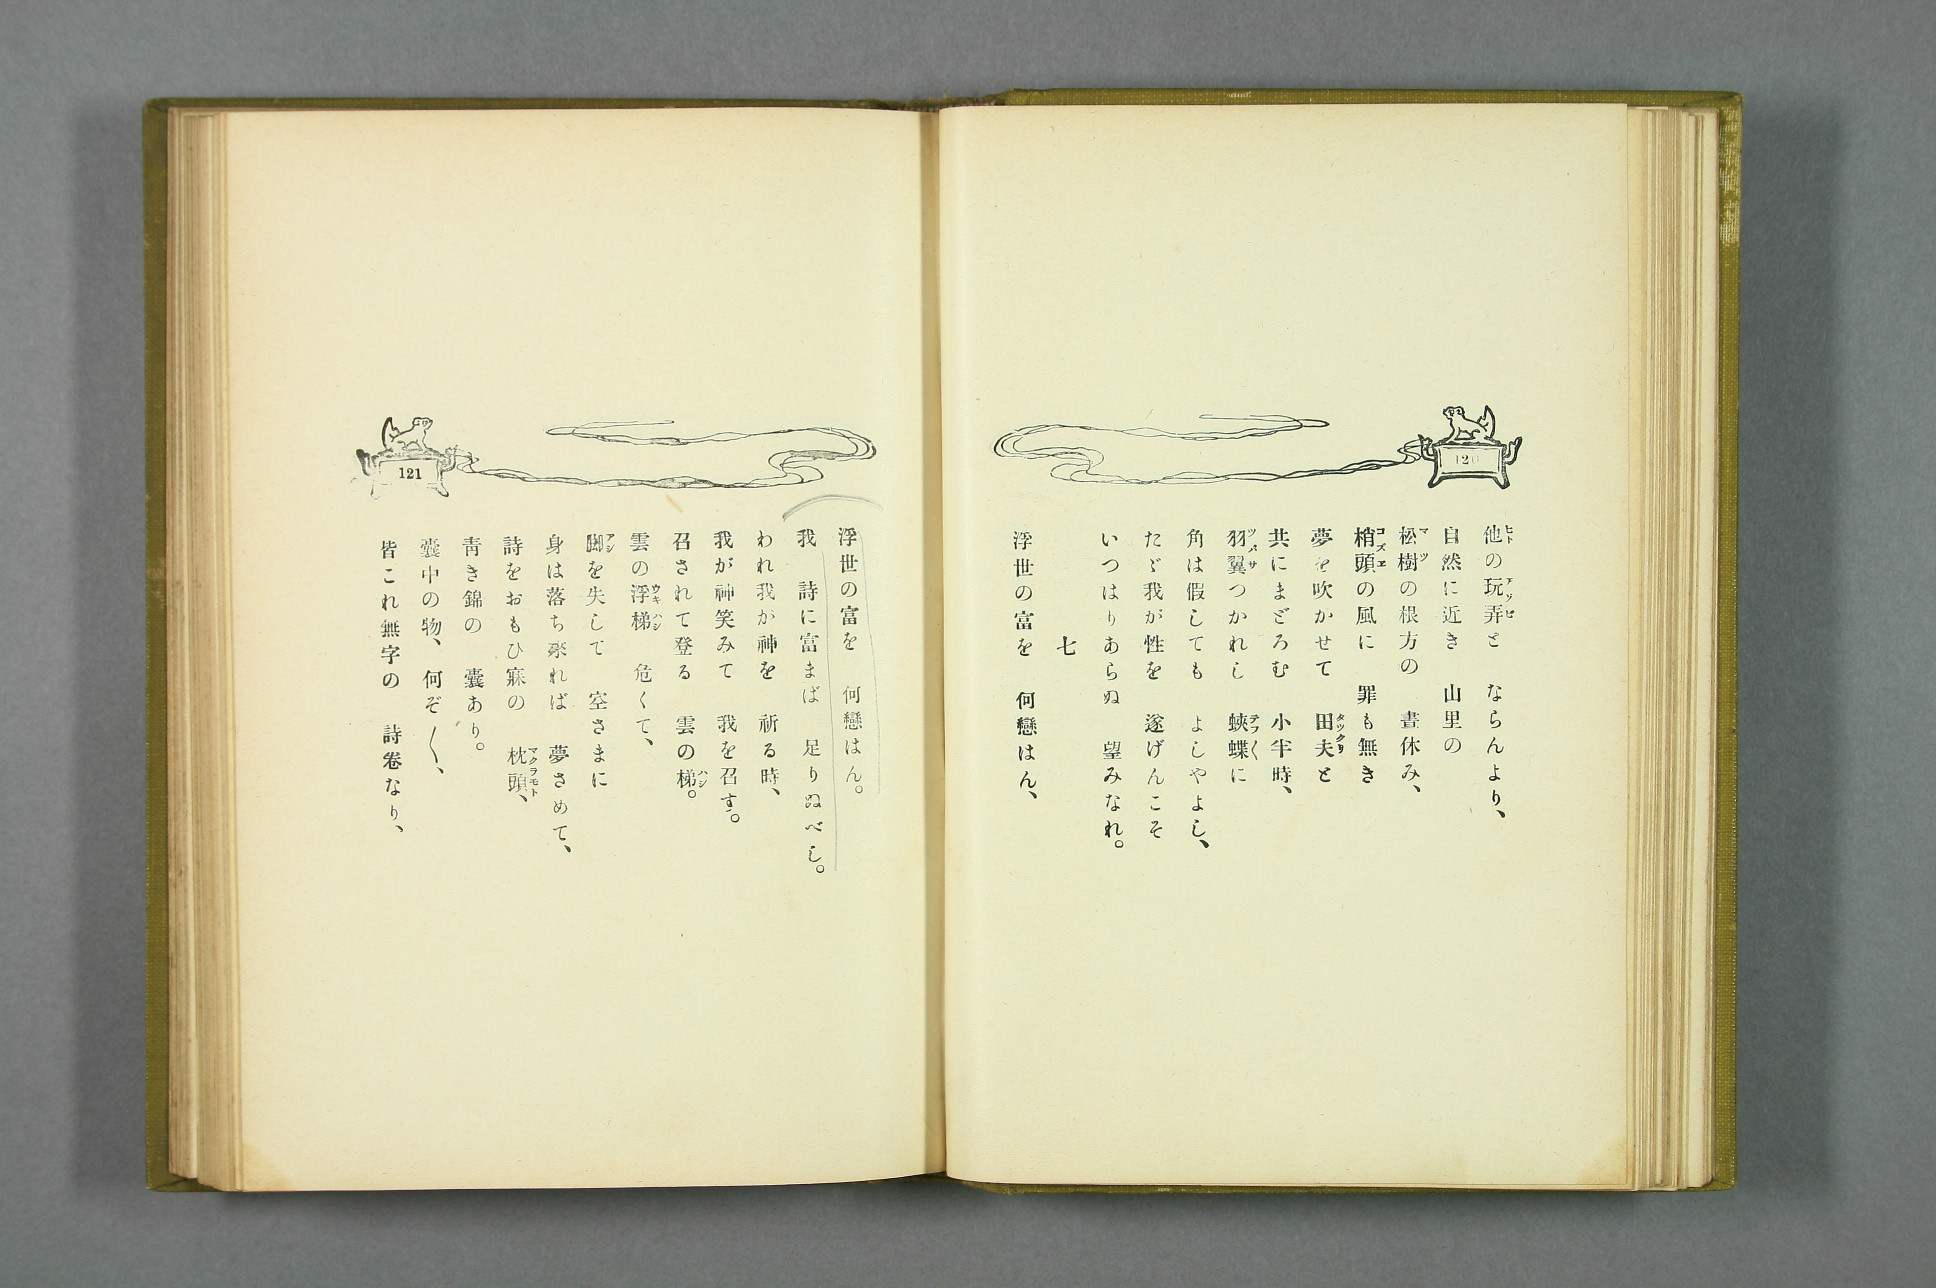 120
他の玩弄と　ならんより、
自然に近き　山里の
松樹の根方の　晝休み、
梢頭の風に　罪も無き
夢を吹かせて　田夫と
共にまどろむ　小半時、
羽翼つかれし　蛺蝶に
角は假しても　よしやよし、
たゞ我が性を　遂げんこそ
いつはりあらぬ　望みなれ。
七
浮世の富を　何戀はん、
121
浮世の富を　何戀はん。
我　詩に富まば　足りぬべし。
われ我が神を　祈る時、
我が神笑みて　我を召す。
召されて登る　雲の梯。
雲の浮梯　危くて、
脚を失して　空さまに
身は落ち來れば　夢さめて、
詩をおもひ寐の　枕頭、
靑き錦の　囊あり。
囊中の物、何ぞ〳〵、
皆これ無字の　詩卷なり、